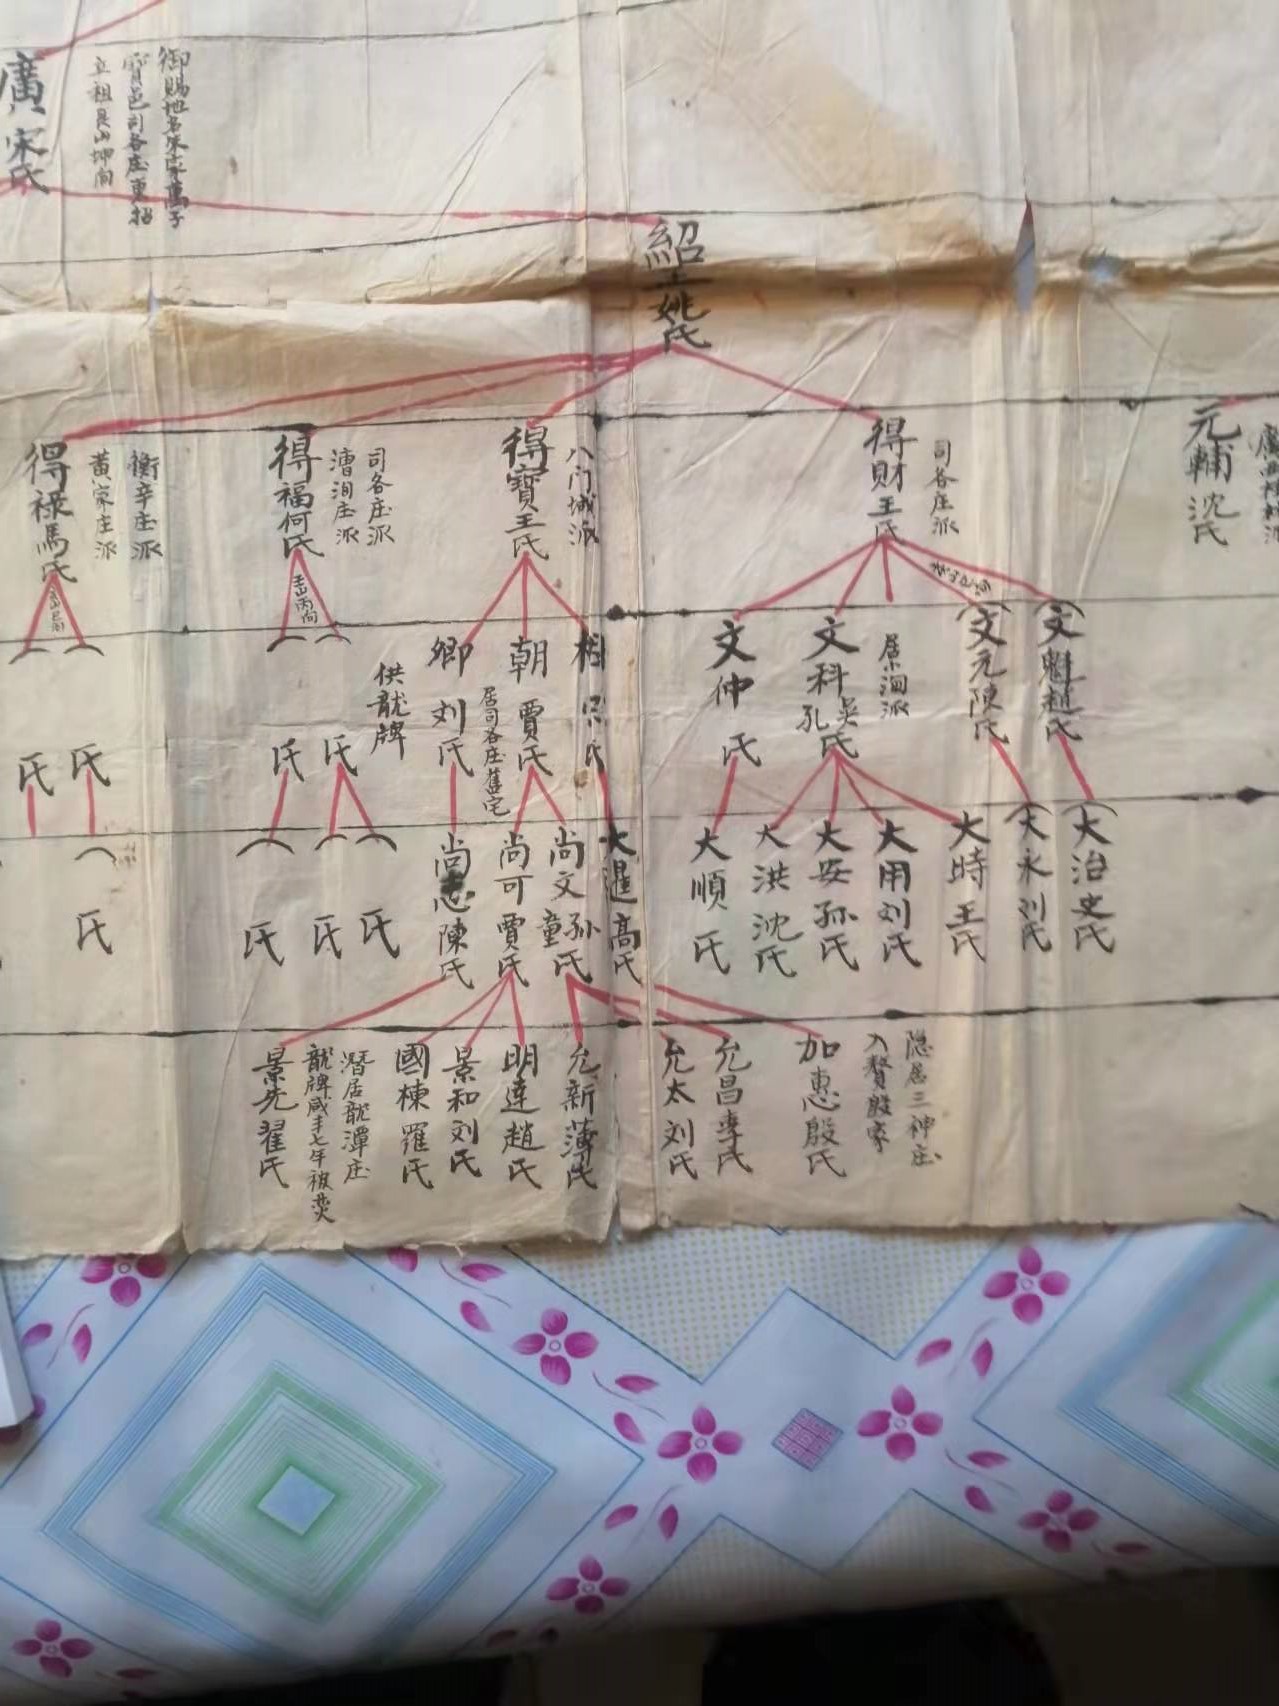 御賜地名朱家萬子
寶邑司各庄更招
立祖艮山坤向
廣宋氏
紹姚氏
元輔沈氏
司各庄派
得財王氏
八门城派
得寶王氏
司各庄派
漕洵庄派
得福何氏
衡辛庄派
黃家庄派
得祿馬氏
文魁趙氏
文元陳氏
居小洄派
文科吳孔氏
文仲 氏
氏
朝賈氏
居司各庄舊宅
卿刘氏
供龍牌
壬山丙向
氏
氏
氏
氏
大治史氏
大永刘氏
大時王氏
大用刘氏
大安孫氏
大洪沈氏
大順 氏
大暹高氏
尚文孫童氏
尚可賈氏
尚忠陳氏
氏
氏
氏
氏
隐居三神庄
入赘殷家
加惠殷氏
允昌李氏
允太刘氏
允新薄氏
明達趙氏
景和刘氏
國棟羅氏
潛居龍潭庄
龍牌咸丰七年被焚
景先翟氏